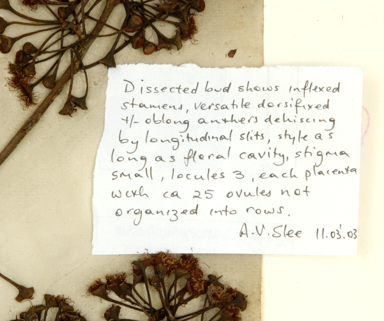 Dissected bud shows inflexed
stamens, versatile dorsifixed
+/- oblong anthers dehiscing
by longitudinal slits, style as
long as floral cavity, stigma
small, locules 3, each placenta
with ca 25 ovules not
organized into rows.
A.V. Slee 11.03.03